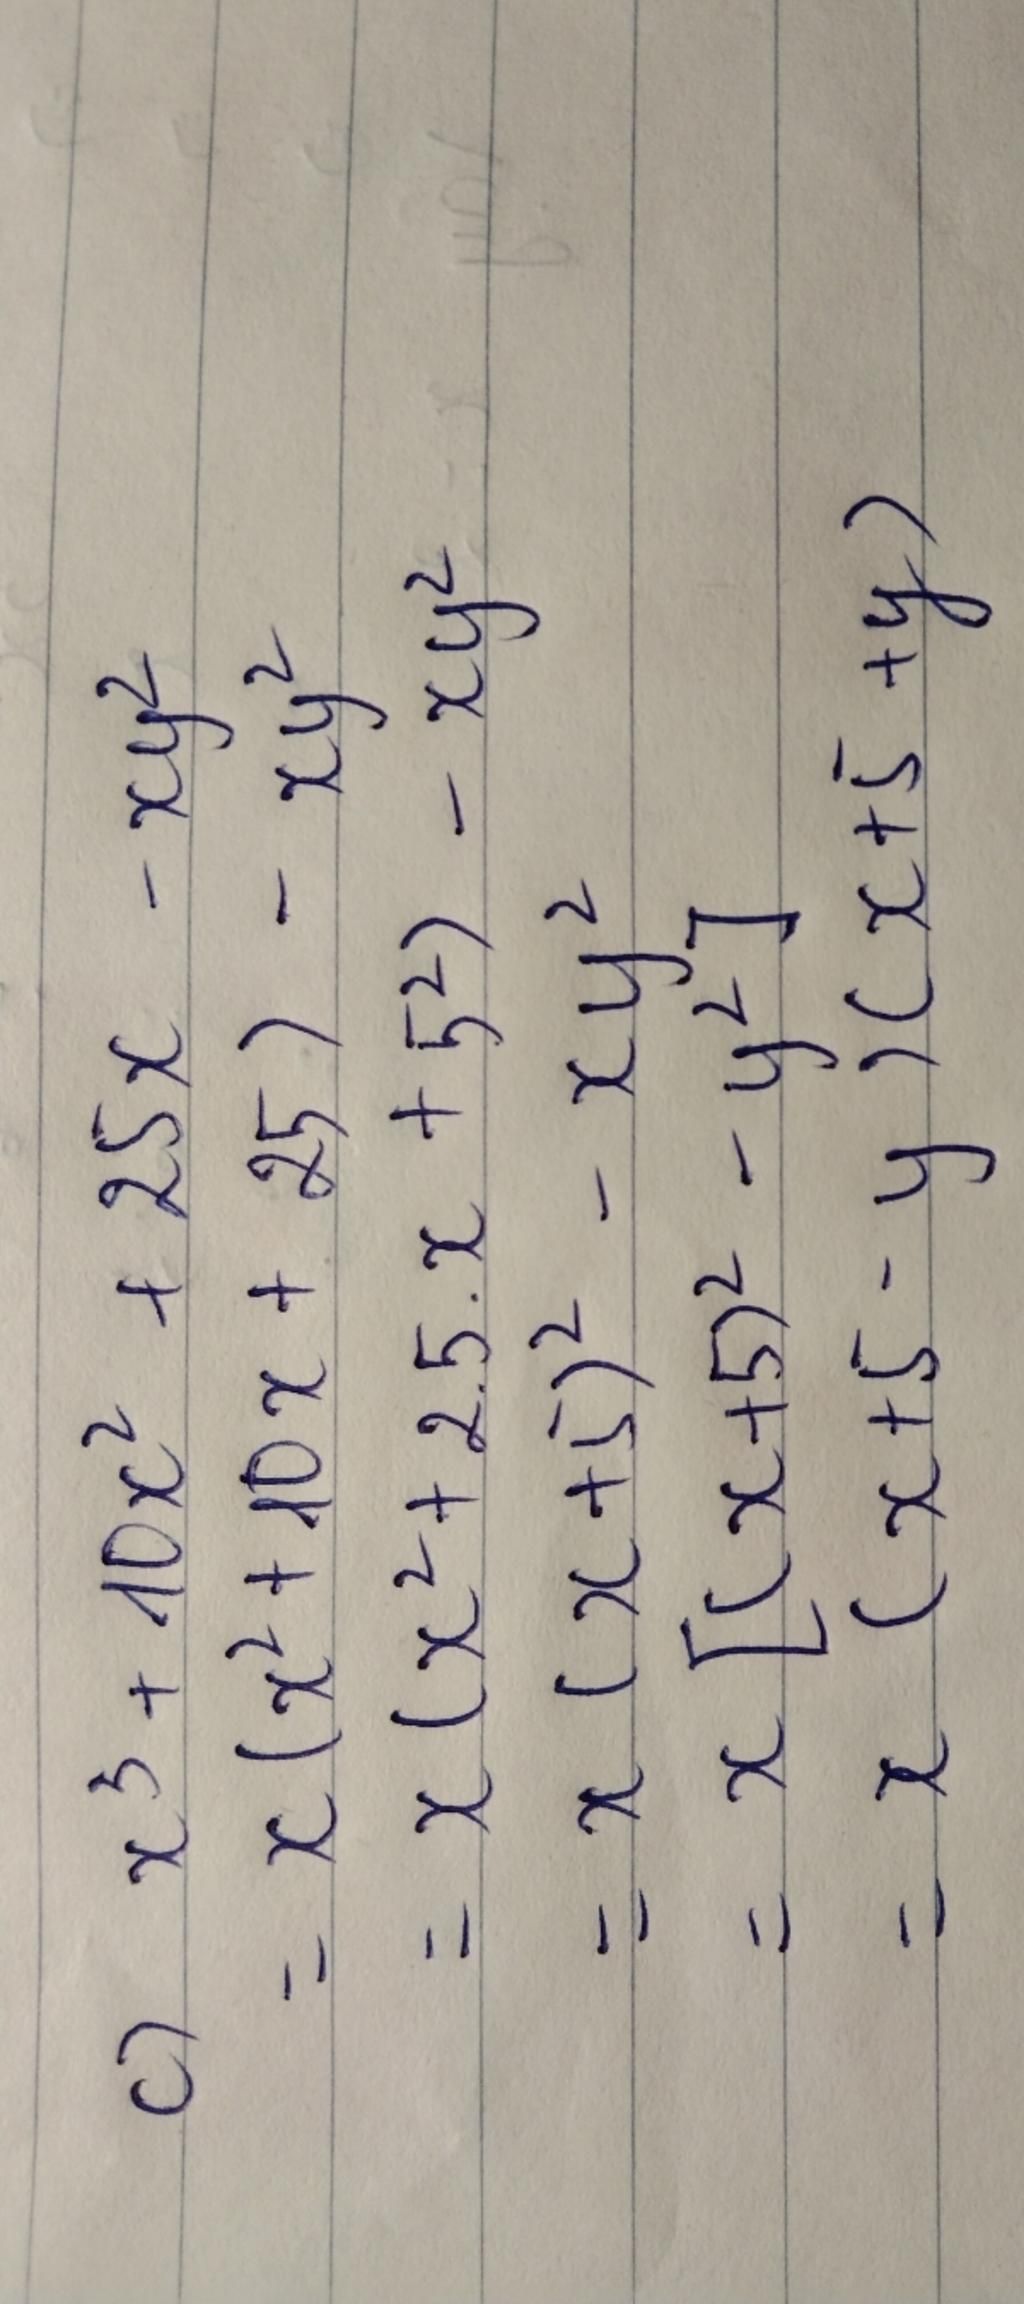 c) x³ + 10x² + 25x - xy²
= x(x² + 10x + 25) - xy²
= x(x² + 2.5.x + 5²) - xy²
= x(x+5)² - xy²
= x[(x+5)² - y²]
= x(x+5-y)(x+5+y)